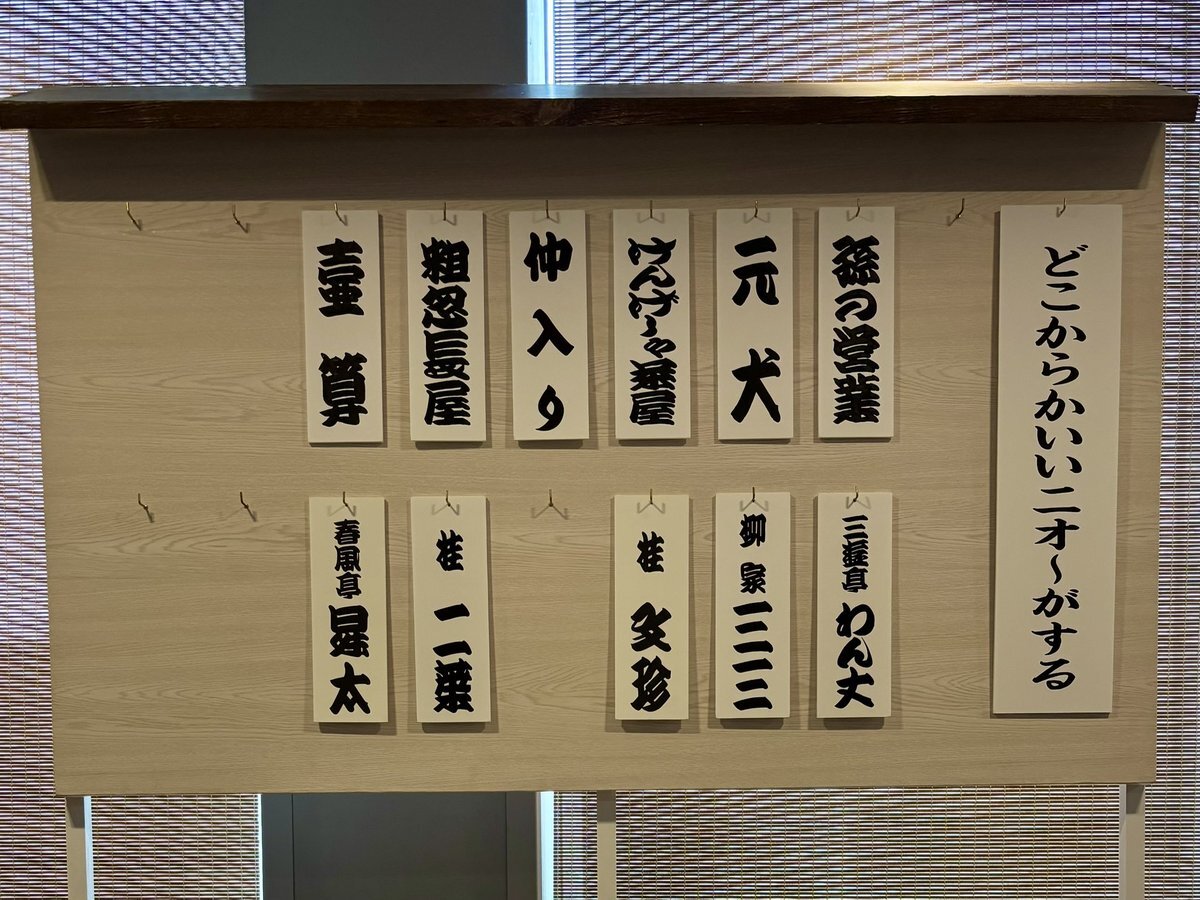 どこからかいいニオ〜がする
孫の営業
三遊亭 わん丈
元犬
柳家 三三
けんげしゃ茶屋
桂 文珍
仲入り
粗忽長屋
桂 二葉
壷算
春風亭 昇太